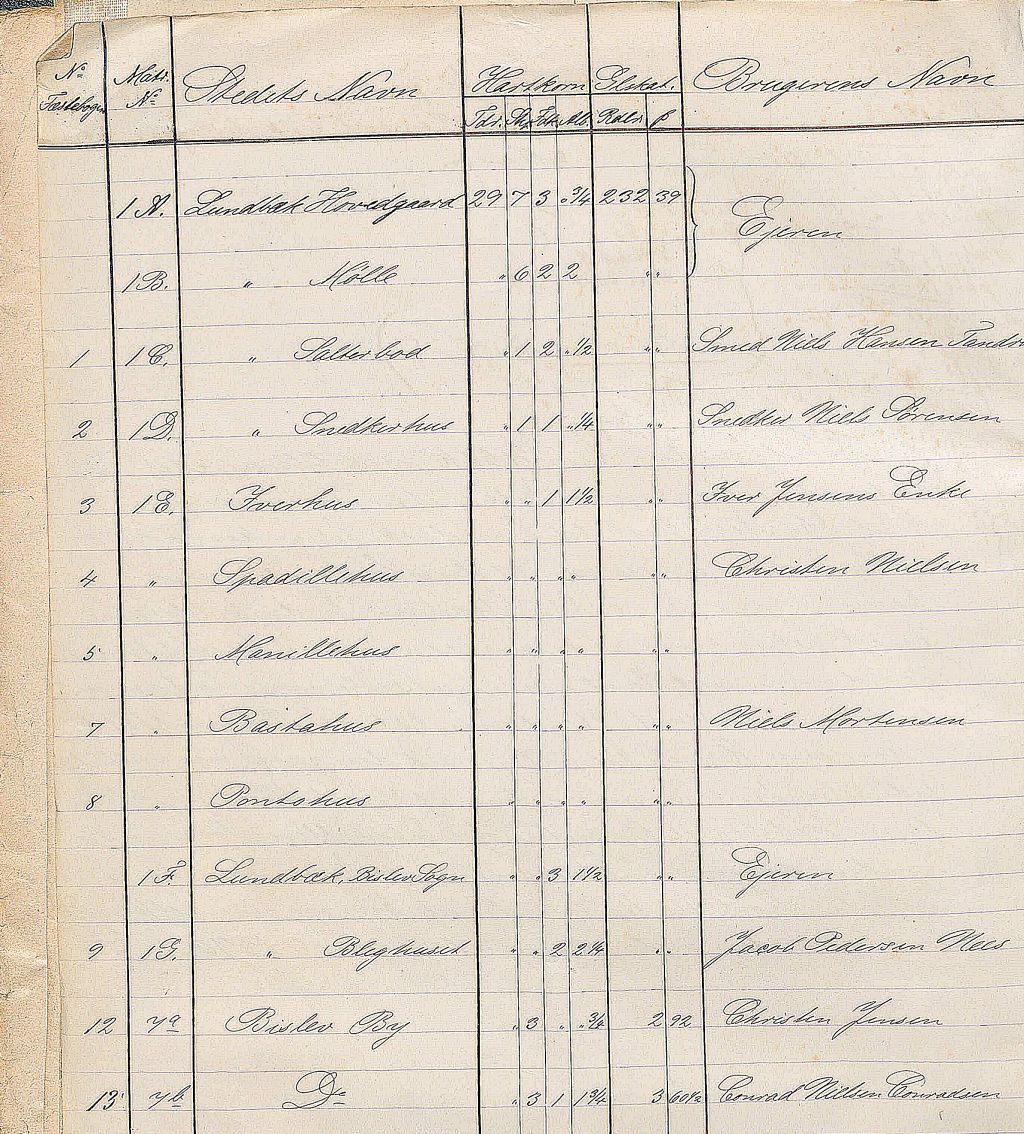 No Matr. Stedets Navn Hartkorn Glskat. Brugerens Navn
Fæstebogen No Tdr. Skp. Fdk. Alb. Rdlr. ß
1 A. Lundbæk Hovedgaard 29 7 3 " 3/4 232 39 Ejeren
1 B. " Mølle " 6 2 2 " "
1 1 C. " Salterbod " 1 2 " 1/2 " " Smed Niels Hansen
2 1 D. " Snedkerhus " 1 1 " 1/4 " " Snedker Niels Sørensen
3 1 E. Iverhus " " 1 1 1/2 " " Iver Jensens Enke
4 " Spadillehus " " " " " " Christen Nielsen
5 " Manillehus " " " " " "
7 " Bastahus " " " " " " Niels Mortensen
8 " Pontohus " " " " " "
1 F. Lundbæk, Bislev Sogn " " 3 1 1/2 " " Ejeren
9 1 G. " Bleghuset " " 2 2 1/4 " " Jacob Pedersen Nees
12 7a Bislev By " 3 " " 3/4 2 92 Christen Jensen
13 7b Do " 3 1 1 3/4 3 60 1/2 Conrad Nielsen Conradsen